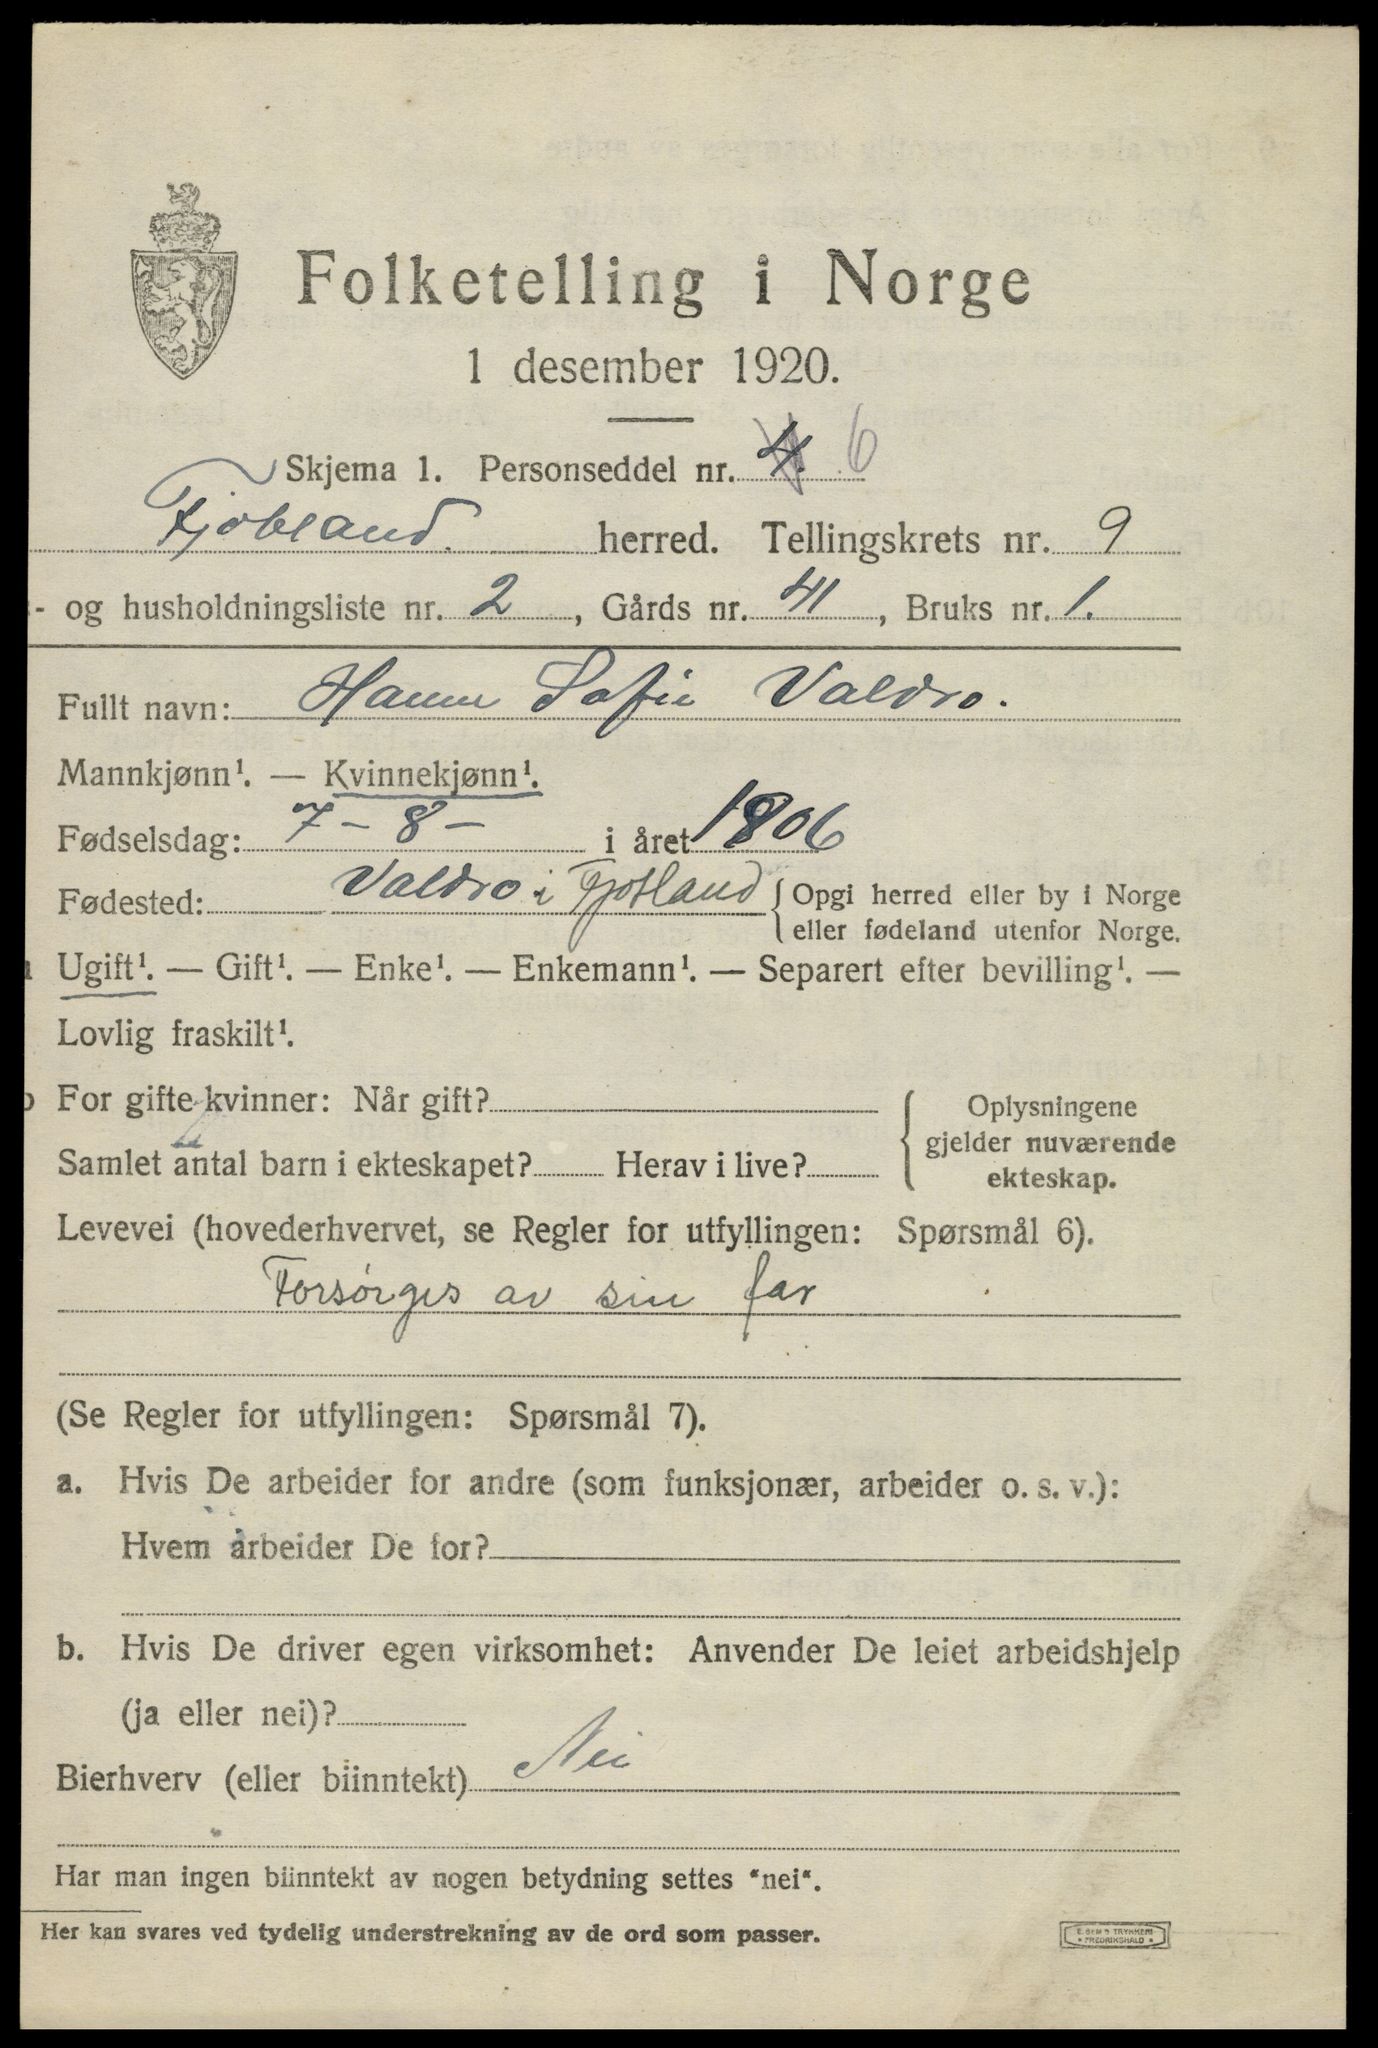 Folketelling i Norge
1 desember 1920.
Skjema 1. Personseddel nr. 4. 6
Fjotland. herred. Tellingskrets nr. 9
- og husholdningsliste nr. 2, Gårds nr. 41, Bruks nr. 1.
Fullt navn: Hanne Sofie Valdro.
Mannkjønn¹. — Kvinnekjønn¹.
Fødselsdag: 7 - 8 - i året 1906
Fødested: Valdro i Fjotland { Opgi herred eller by i Norge
eller fødeland utenfor Norge.
Ugift¹. — Gift¹. — Enke¹. — Enkemann¹. — Separert efter bevilling¹. —
Lovlig fraskilt¹.
For gifte kvinner: Når gift?
Samlet antal barn i ekteskapet? Herav i live?
{ Oplysningene
gjelder nuværende
ekteskap.
Levevei (hovederhvervet, se Regler for utfyllingen: Spørsmål 6).
Forsørges av sin far
(Se Regler for utfyllingen: Spørsmål 7).
a. Hvis De arbeider for andre (som funksjonær, arbeider o. s. v.):
Hvem arbeider De for?
b. Hvis De driver egen virksomhet: Anvender De leiet arbeidshjelp
(ja eller nei)?
Bierhverv (eller biinntekt) Nei
Har man ingen biinntekt av nogen betydning settes "nei".
Her kan svares ved tydelig understrekning av de ord som passer.
TRYKKERI
FREDRIKSHALD